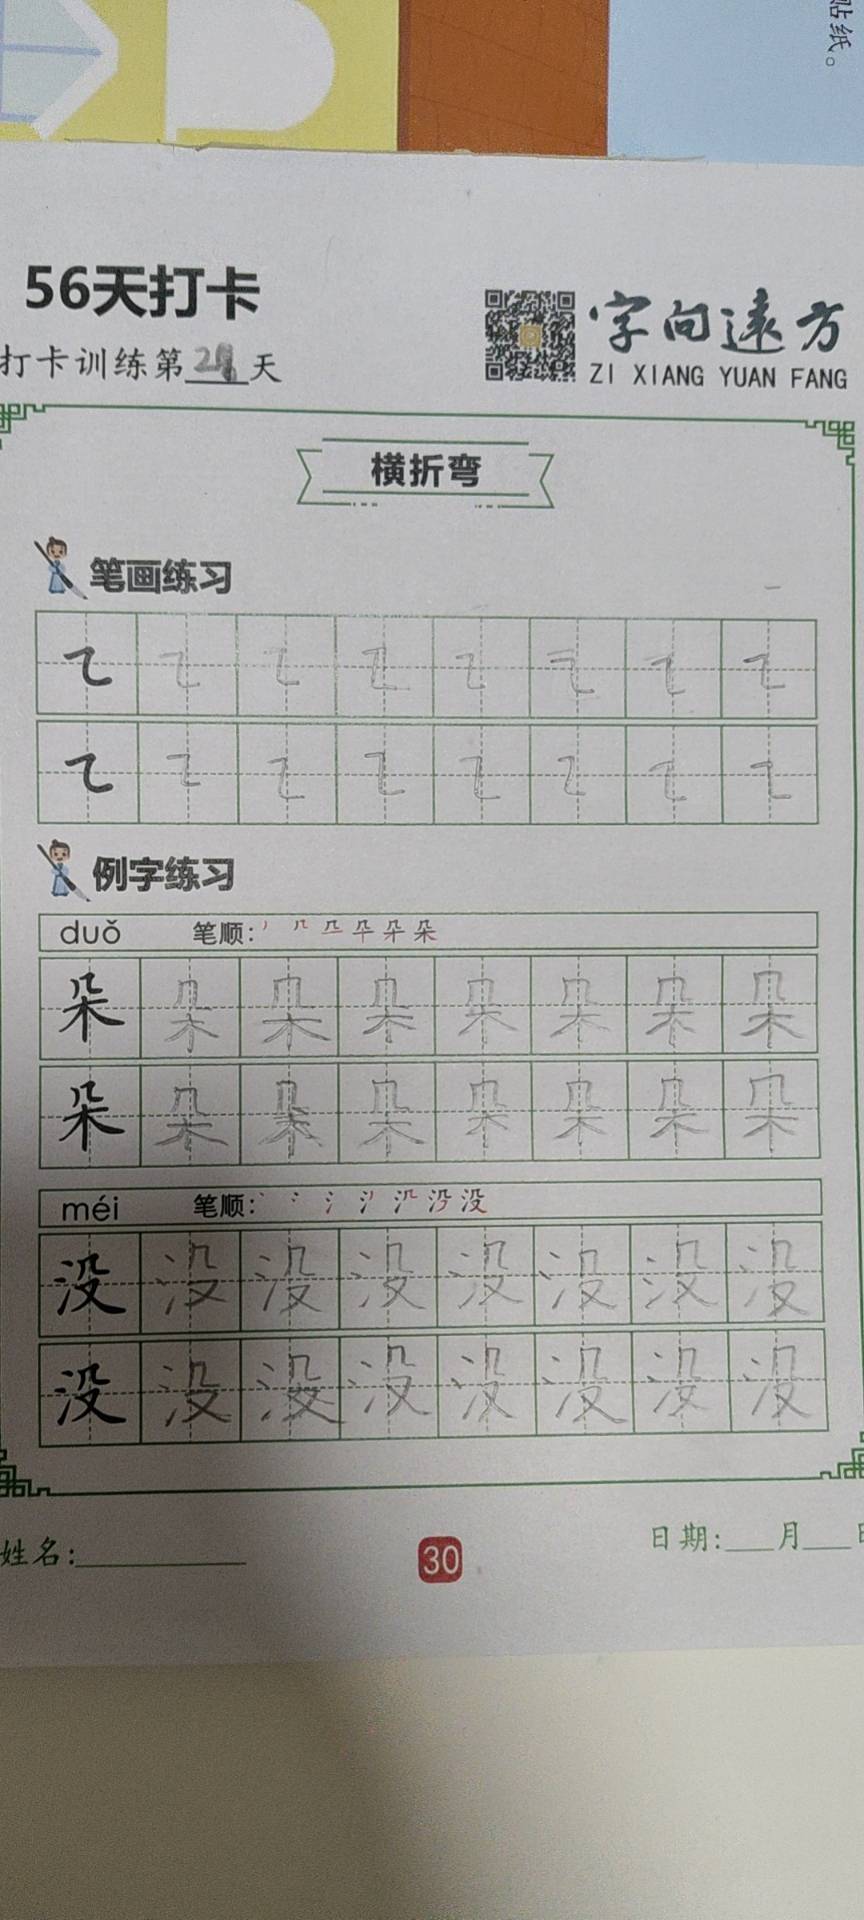 贴纸。
56天打卡
字向远方
打卡训练第28天
ZI XIANG YUAN FANG
横折弯
笔画练习
㇍ ㇍ ㇍ ㇍ ㇍ ㇍ ㇍ ㇍
㇍ ㇍ ㇍ ㇍ ㇍ ㇍ ㇍ ㇍
例字练习
duǒ 笔顺：
朵 朵 朵 朵 朵 朵 朵 朵
朵 朵 朵 朵 朵 朵 朵 朵
méi 笔顺：
没 没 没 没 没 没 没 没
没 没 没 没 没 没 没 没
姓名:
30
日期:___月___日